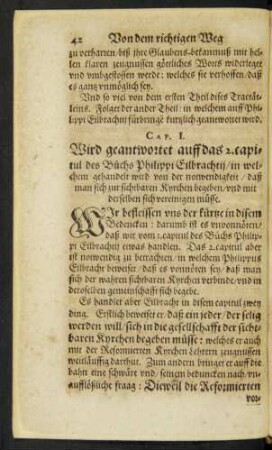 42 Von dem richtigen Weg
zu verharren / biß ihre Glaubens-bekantnuß mit hel-
len klaren zeugnussen götliches Worts widerleget
vnd vmbgestossen werde: welches sie verhoffen / daß
es gantz vnmöglich sey.
Vnd so viel von dem ersten Theil dises Tractät-
leins. Folget der ander Theil: in welchem auff Phi-
lippi Eilbrachtij fürbringē kürtzlich geantwortet wird.
CAP. I.
Wird geantwortet auff das 2. capi-
tul des Büchs Philippi Eilbrachtij / in wel-
chem gehandelt wird von der notwendigkeit / daß
man sich zur sichtbaren Kyrchen begeben / vnd mit
derselben sich vereinigen müsse.
WIr befleissen vns der kürtze in disem
Bedencken: darumb ist es vnvonnöten /
daß wir vom 1. capitul des Büchs Philip-
pi Eilbrachtij etwas handlen. Das 2. capitul aber
ist notwendig zu betrachten / in welchem Philippus
Eilbracht beweiset / daß es vonnöten sey / daß man
sich der wahren sichtbaren Kyrchen verbinde / vnd in
deroselben gemeinschafft sich begebe.
Es handlet aber Eilbracht in disem capitul zwey
ding. Erstlich beweiset er / daß ein jeder / der selig
werden will / sich in die gesellschafft der sicht-
baren Kyrchen begeben müsse: welches er auch
mit der Reformierten Kyrchen Lehrern zeugnussen
weitläuffig darthut. Zum andern bringet er auff die
bahn eine schwäre vnd / seinen beduncken nach / vn-
aufflößliche fraag: Dieweil die Reformierten
vor-